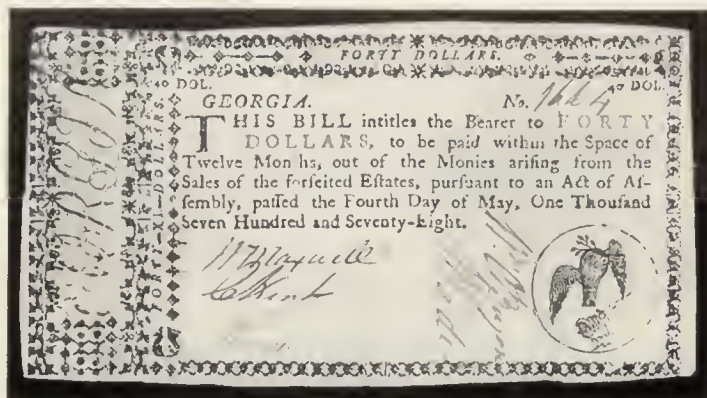 FORTY DOLLARS.
40 DOL. 40 DOL.
GEORGIA. No.
THIS BILL intitles the Bearer to FORTY
DOLLARS, to be paid within the Space of
Twelve Mon hs, out of the Monies ariſing from the
Sales of the forfeited Eſtates, purſuant to an Act of Aſ-
ſembly, paſſed the Fourth Day of May, One Thouſand
Seven Hundred and Seventy-Eight.
Wm Maxwell
C Kent
FORTY—XL—DOLLARS.
GEORGIA